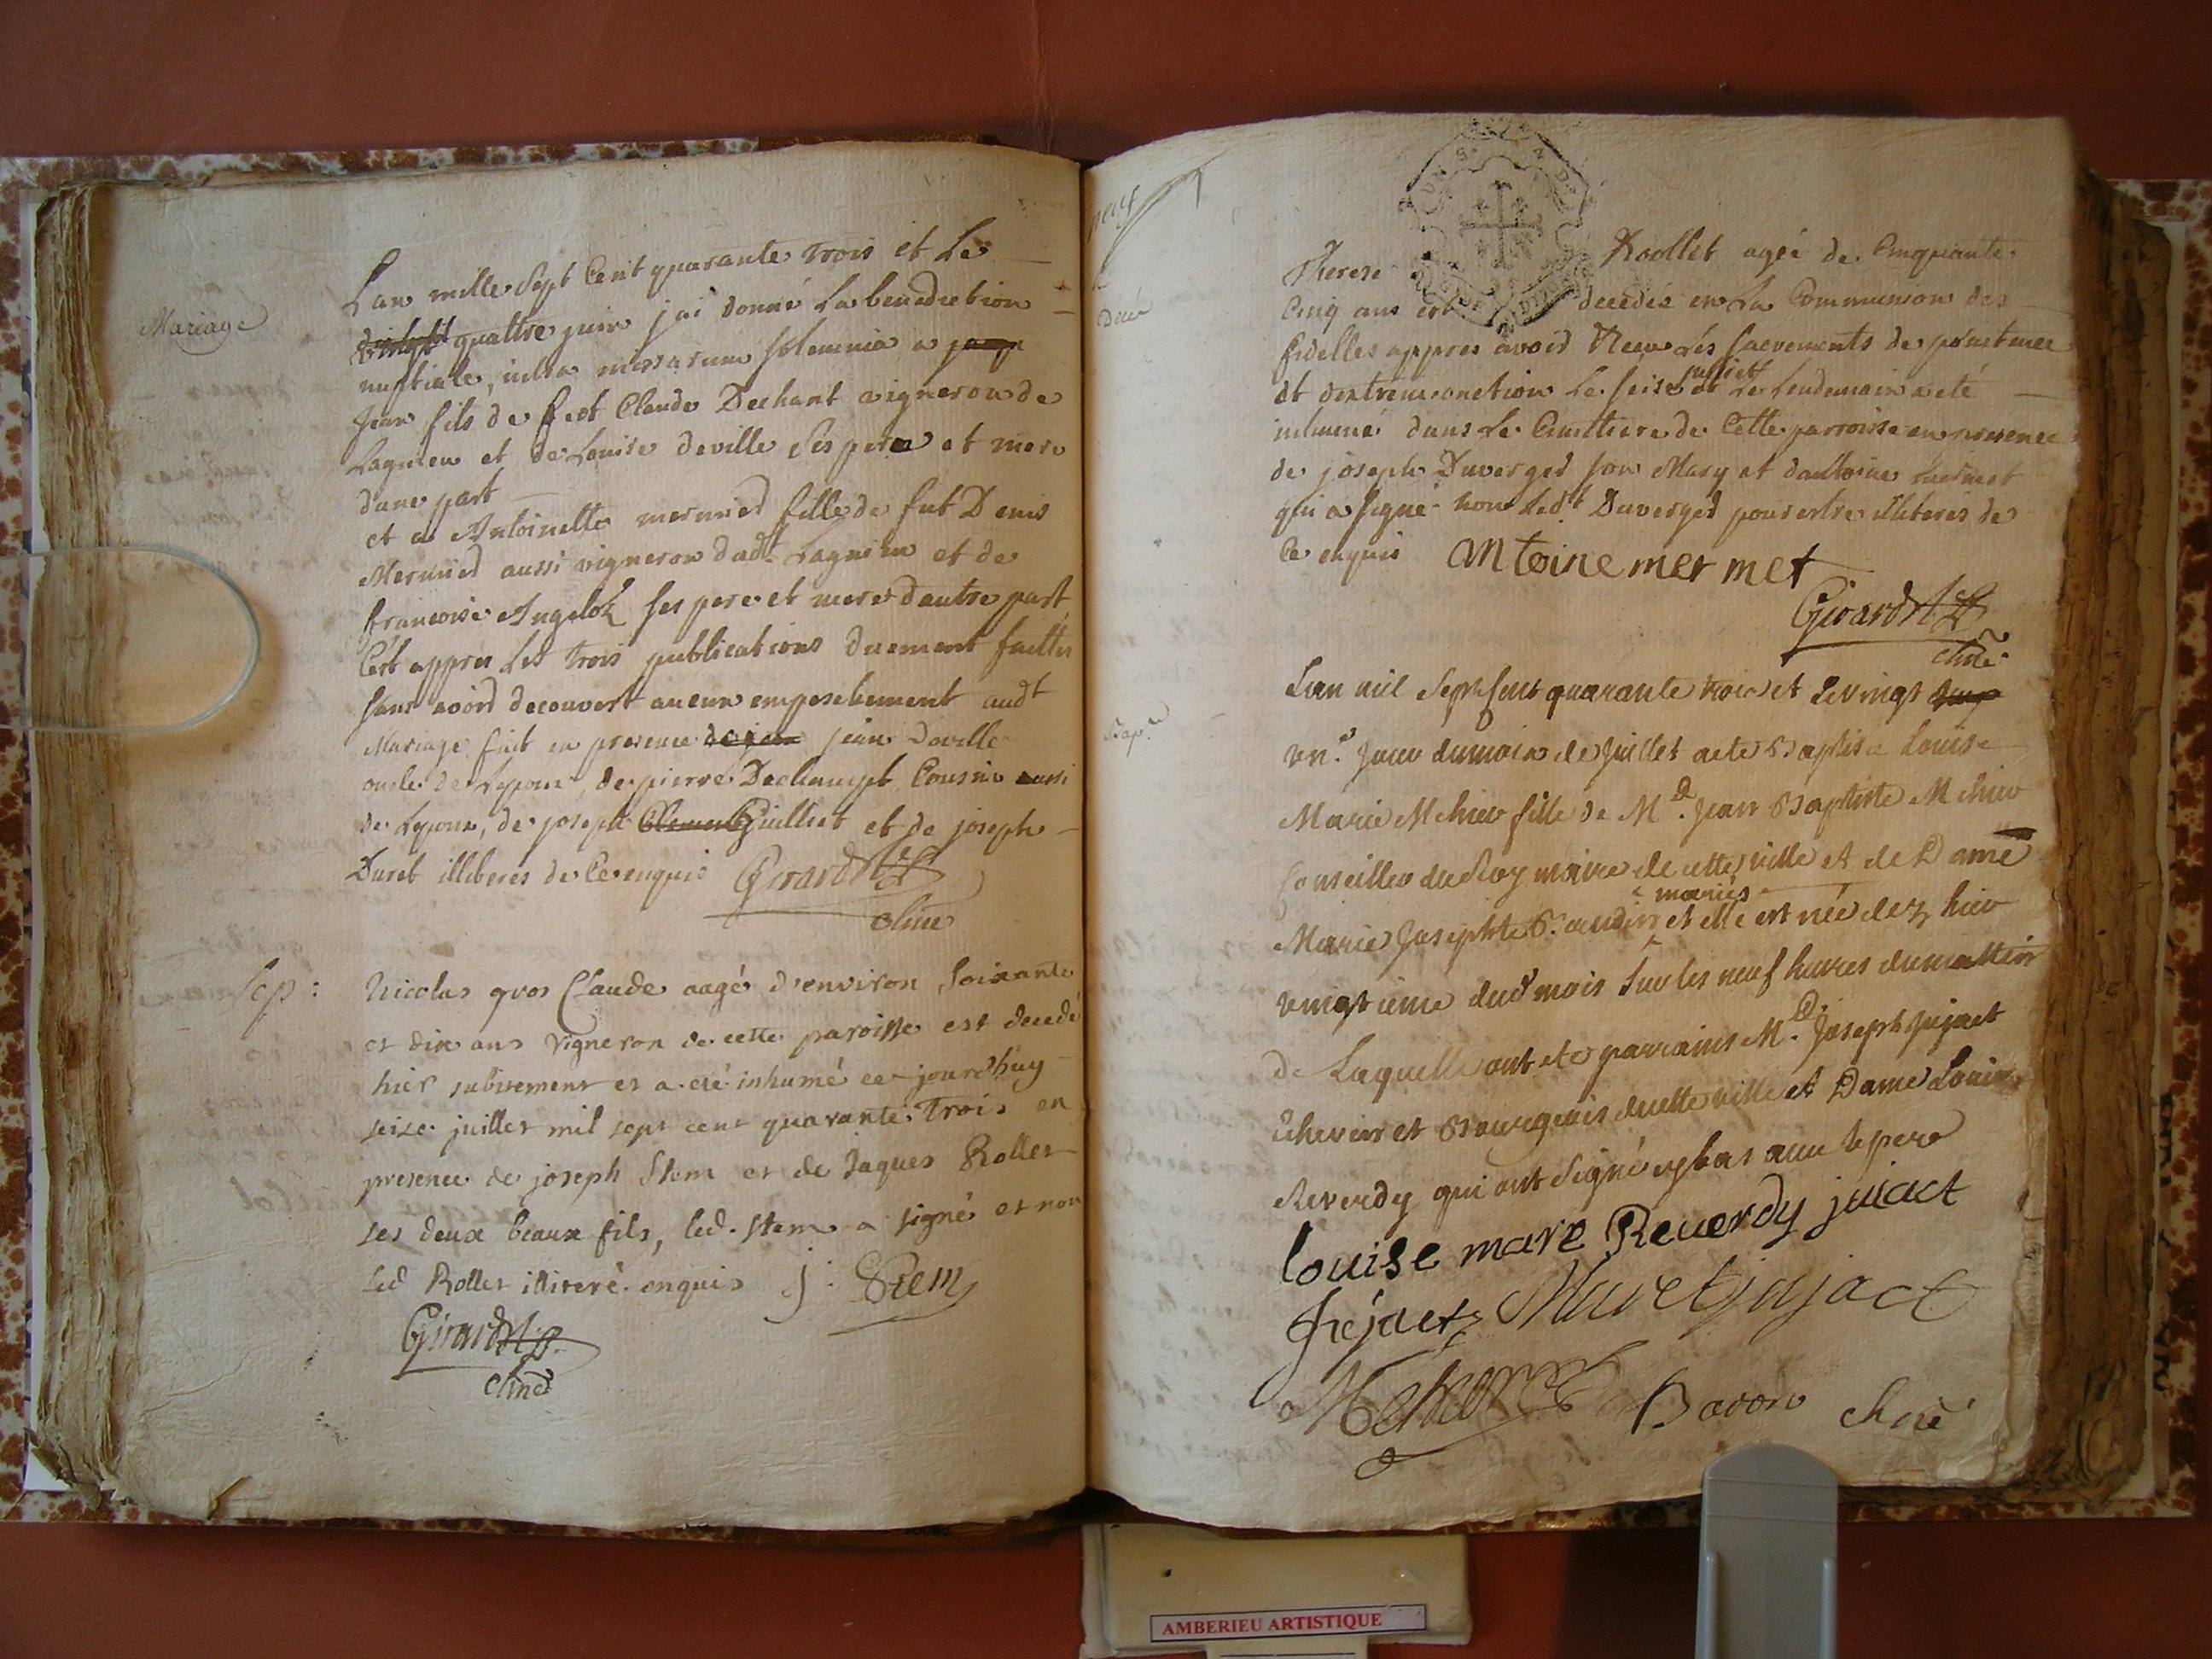 Mariage
L'an mille Sept Cent quarante trois et Le
quattre juin j'ai donné La benediction
nuptiale, intra missarum solemnia a
Jean fils de feut Claude Dechant vigneron de
Lagnieu et de Louise deville Ses pere et mere
d'une part
et a Antoinette mermied fille de fut Denis
Mermied aussi vigneron dudt Lagnieu et de
francoise Angelot ses pere et mere d'autre part
Cest appres Les trois publications duement faittes
sans avoid decouvert aucun empeschement audt
Mariage fait en presence jean Deville
oncle de Lepoux, de pierre Dechampt Cousin aussi
de Lepoux, de joseph Guillet et de joseph
Duret illiteres de Ce enquis Girard
chne
Sep :
Nicolas gros Claude aagé d'environ Soixante
et dix ans vigneron de cette paroisse est decedé
hier subitement et a eté inhumé ce jourdhuy
seise juillet mil sept cent quarante trois en
presence de joseph Stem et de Jaques Rollet
ses deux beaux fils, led. Stem a signé et non
led Rollet illiteré enquis j : Stem
Girard
chne
neuf
Therese Rollet agée de Cinquante
Cinq ans est decedée en La Communion des
fidelles appres avoid Receu Lés sacrements de penitence
et d'extremonction Le seise juillet et Le Lendemain a eté
inhumé dans Le Cimittiere de Cette parroisse en presence
de joseph Duverged son Mary et d'antoine mermet
qui a signé non Ledt Duverged pour estre illiterés de
Ce enquis Antoine mermet
Girard
chne
Bap.e
L'an mil Sept Cent quarante trois et le vingt
un.e Jour du mois de Juillet a eté Baptisé Louise
Marie Mehier fille de M.r Jean Baptiste Mehier
Conseiller du Roy maire de cette ville et de Dame
Marie Josephte mariés et elle est née dez hier
vingtieme dud mois sur les neuf heures du mattin
de Laquelle ont eté parrains M.r Joseph Jujact
Echevin et Bourgeois de cette ville et Dame Louise
Reverdy qui ont signé cy bas avec le pere
louise mare Reuerdy juiact
Jujact
Baron chne
AMBERIEU ARTISTIQUE